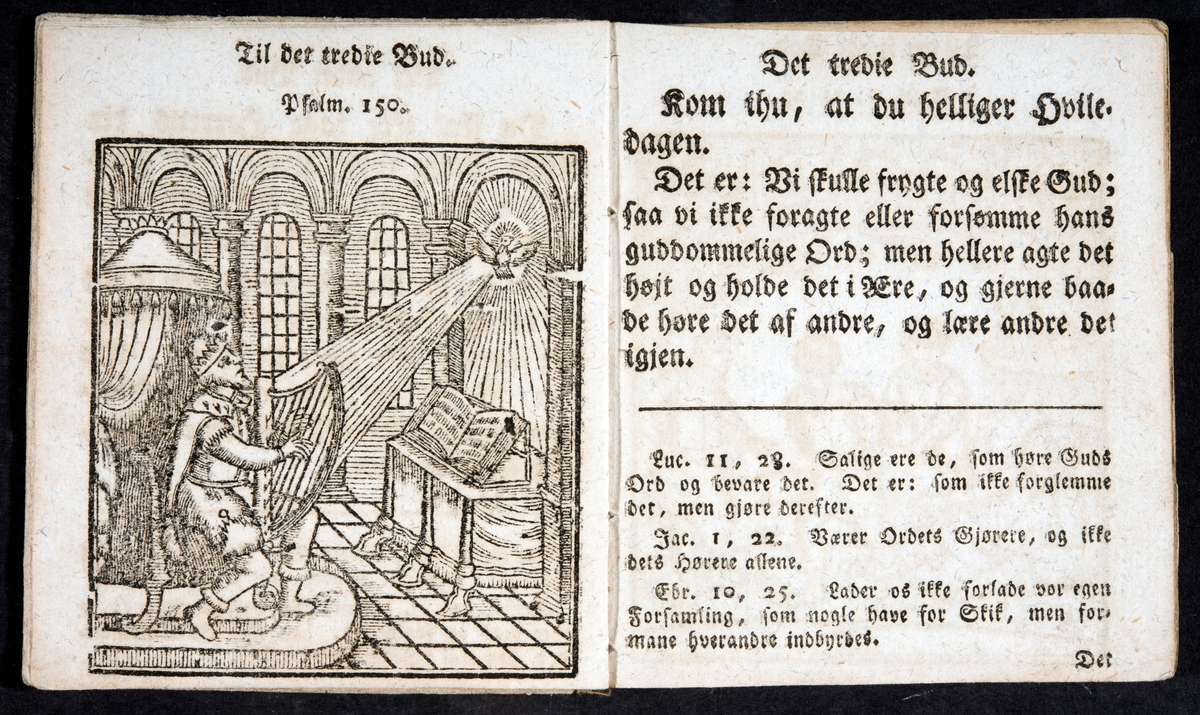 Til det tredie Bud.
Psalm. 150.
Det tredie Bud.
Kom ihu, at du helliger Hvile-
dagen.
Det er: Vi skulle frygte og elske Gud;
saa vi ikke foragte eller forsømme hans
guddommelige Ord; men hellere agte det
højt og holde det i Ære, og gjerne baa-
de høre det af andre, og lære andre det
igjen.
Luc. 11, 28. Salige ere de, som høre Guds
Ord og bevare det. Det er: som ikke forglemme
det, men gjøre derefter.
Jac. 1, 22. Værer Ordets Gjørere, og ikke
dets Hørere allene.
Ebr. 10, 25. Lader os ikke forlade vor egen
Forsamling, som nogle have for Skik, men for-
mane hverandre indbyrdes.
Det